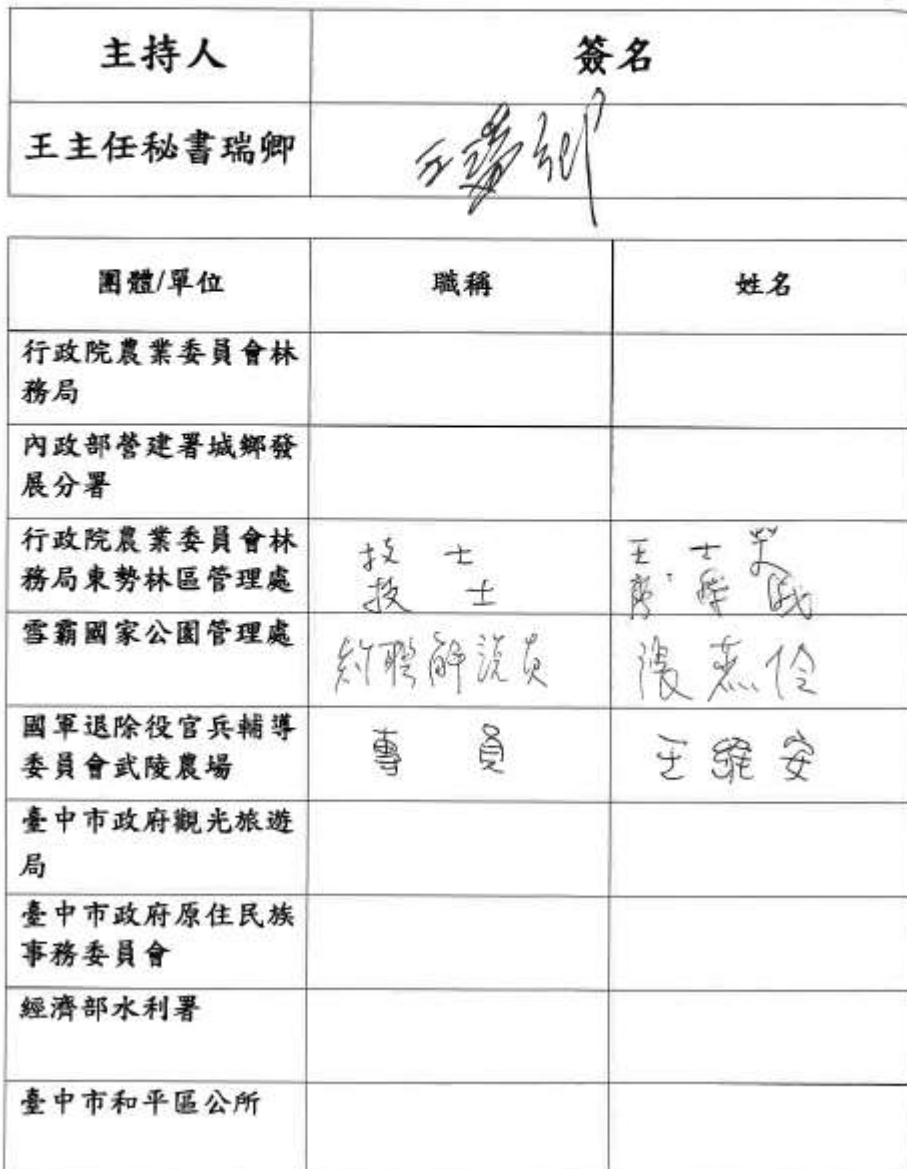 主持人 簽名
王主任秘書瑞卿 王瑞卿
團體/單位 職稱 姓名
行政院農業委員會林
務局
內政部營建署城鄉發
展分署
行政院農業委員會林 技士 王士
務局東勢林區管理處 技士
雪霸國家公園管理處 約聘解說員 張燕伶
國軍退除役官兵輔導
委員會武陵農場 專員 王維安
臺中市政府觀光旅遊
局
臺中市政府原住民族
事務委員會
經濟部水利署
臺中市和平區公所